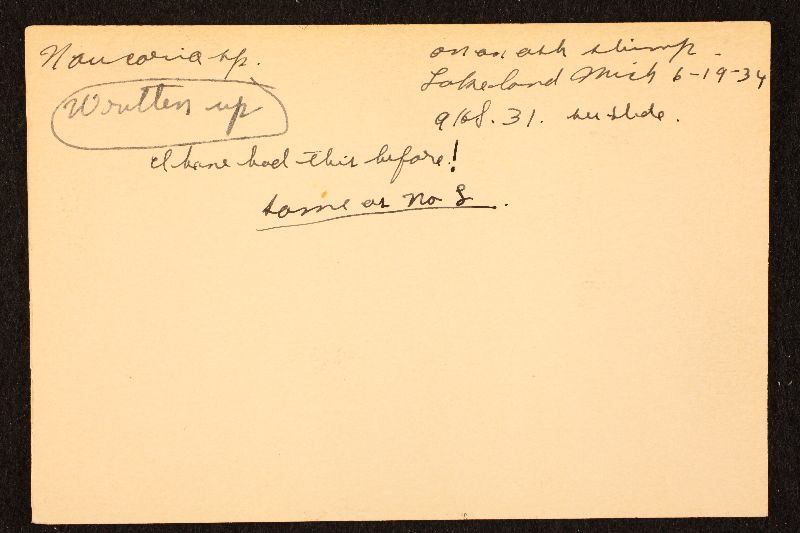 Naucoria sp.
on an ash stump -
Lakeland Mich 6-19-34
Written up
9168. 31. see slide.
I have had this before!
same as no 8.